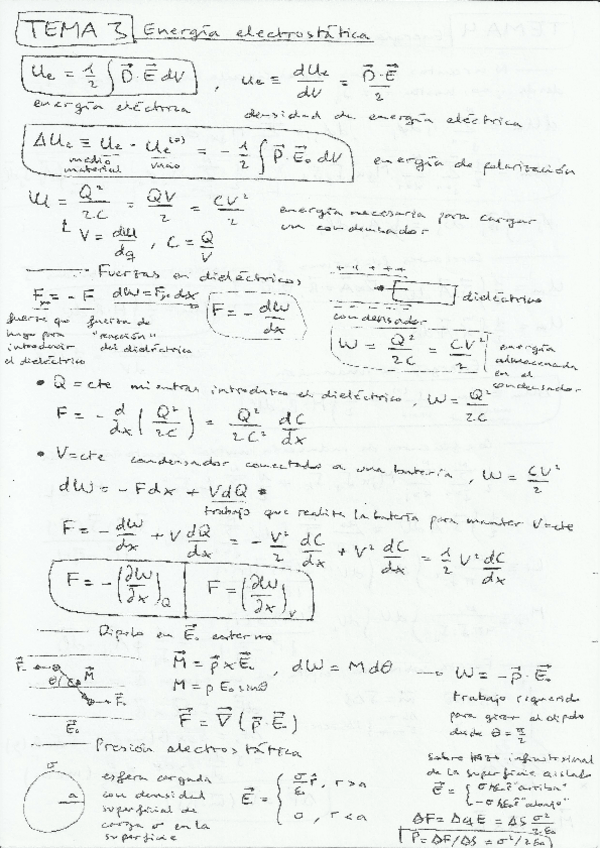 TEMA 3 Energía electrostática
Ue = 1/2 ∫ D⃗·E⃗ dV , ue ≡ dUe/dV = D⃗·E⃗/2
energía eléctrica densidad de energía eléctrica
ΔUe ≡ Ue - Ue^(0) = -1/2 ∫ P⃗·E⃗₀ dV energía de polarización
medio material vacío
W = Q²/2C = QV/2 = CV²/2 energía necesaria para cargar un condensador
V = dW/dq , C = Q/V
Fuerzas en dieléctricos
Fyo = -F dW = Fyo dx F = -dW/dx
fuerza que hago para introducir el dieléctrico
fuerza de "reacción" del dieléctrico
+ + + + +
dieléctrico
condensador
W = Q²/2C = CV²/2 energía almacenada en el condensador
• Q=cte mientras introduzco el dieléctrico, W = Q²/2C
F = -d/dx (Q²/2C) = Q²/2C² dC/dx
• V=cte condensador conectado a una batería, W = CV²/2
dW = -Fdx + VdQ
trabajo que realiza la batería para mantener V=cte
F = -dW/dx + V dQ/dx = -V²/2 dC/dx + V² dC/dx = 1/2 V² dC/dx
F = -(∂W/∂x)Q F = (∂W/∂x)V
Dipolo en E⃗₀ externo
M⃗ = p⃗ x E⃗₀ , dW = M dθ → W = -p⃗·E⃗₀
M = p E₀ sinθ
trabajo requerido para girar el dipolo desde θ = π/2
F⃗ = ∇⃗(p⃗·E⃗)
F₋ θ M⃗ F₊
E⃗₀
Presión electrostática
σ
a
esfera cargada con densidad superficial de carga σ en la superficie
E⃗ = { σ/ε₀ r̂, r>a
0, r<a
sobre infinitesimal de la superficie aislado
E⃗ = { σ/2ε₀ r̂ "arriba"
-σ/2ε₀ r̂ "abajo"
ΔF = Δq E = ΔS σ²/2ε₀
P = ΔF/ΔS = σ²/2ε₀